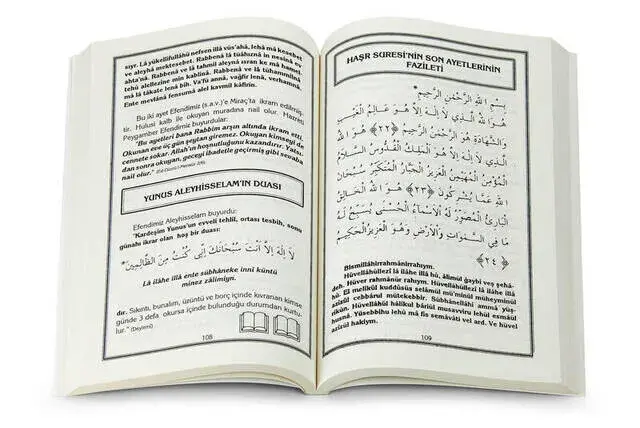 sıyr. Lâ yükellifullâhü nefsen illâ vüs'ahâ, lehâ mâ kesebet
ve aleyhâ mektesebet. Rabbenâ lâ tüâhıznâ in nesînâ ev
ahta'nâ. Rabbenâ ve lâ tahmil aleynâ ısran ke mâ hamel-
tehû alellezîne min kablinâ. Rabbenâ ve lâ tühammilnâ
mâ lâ tâkate lenâ bih. Va'fü annâ, vağfir lenâ, verhamnâ,
Ente mevlânâ fensurnâ alel kavmil kâfirîn.
Bu iki ayet Efendimiz (s.a.v.)'e Miraç'ta ikram edilmiş-
tir. Hulusi kalb ile okuyan muradına nail olur. Hazreti
Peygamber Efendimiz buyurdular:
"Bu ayetleri bana Rabbim arşın altında ikram etti.
Okunan eve üç gün şeytan giremez. Okuyan kimseyi de
cennete sokar. Allah'ın hoşnutluğunu kazandırır. Yatsı-
dan sonra okuyan, geceyi ibadetle geçirmiş gibi sevaba
nail olur."
YUNUS ALEYHİSSELAM'IN DUASI
Efendimiz Aleyhisselam buyurdu:
"Kardeşim Yunus'un evveli tehlil, ortası tesbih, sonu
günahı ikrar olan hoş bir duası:
لَا إِلٰهَ إِلَّا أَنْتَ سُبْحَانَكَ إِنِّى كُنْتُ مِنَ الظَّالِمِينَ*
Lâ ilâhe illâ ente sübhâneke innî küntü
minez zâlimîyn.
dır. Sıkıntı, bunalım, üzüntü ve borç içinde kıvranan kimse
günde 3 defa okursa içinde bulunduğu durumdan kurtu-
lur." (Deylemî)
108
HAŞR SURESİ'NİN SON AYETLERİNİN
FAZİLETİ
بِسْمِ اللهِ الرَّحْمٰنِ الرَّحِيمِ*
هُوَ اللهُ الَّذِى لَا إِلٰهَ إِلَّا هُوَ عَالِمُ الْغَيْبِ
وَالشَّهَادَةِ هُوَ الرَّحْمٰنُ الرَّحِيمُ ﴿٢٢﴾ هُوَ اللهُ
الَّذِى لَا إِلٰهَ إِلَّا هُوَ الْمَلِكُ الْقُدُّوسُ السَّلَامُ
الْمُؤْمِنُ الْمُهَيْمِنُ الْعَزِيزُ الْجَبَّارُ الْمُتَكَبِّرُ سُبْحَانَ
اللهِ عَمَّا يُشْرِكُونَ ﴿٢٣﴾ هُوَ اللهُ الْخَالِقُ
الْبَارِئُ الْمُصَوِّرُ لَهُ الْأَسْمَاءُ الْحُسْنٰى يُسَبِّحُ لَهُ
مَا فِى السَّمٰوَاتِ وَالْأَرْضِ وَهُوَ الْعَزِيزُ الْحَكِيمُ
﴿٢٤﴾
Bismillâhirrahmânirrahıym.
Hüvellâhüllezî lâ ilâhe illâ hû, âlimül ğaybi veş şehâ-
deh. Hüver rahmânür rahıym. Hüvellâhüllezî lâ ilâhe illâ
hû. El melikül kuddûsüs selâmül mü'minül müheyminül
azîzül cebbârul mütekebbir. Sübhânellâhi ammâ yüş-
rikûn. Hüvellâhül hâlikul bâriül musavviru lehül esmâül
hüsnâ. Yüsebbihu lehû mâ fis semâvâti vel ard. Ve hüvel
azîzül hakîym.
109